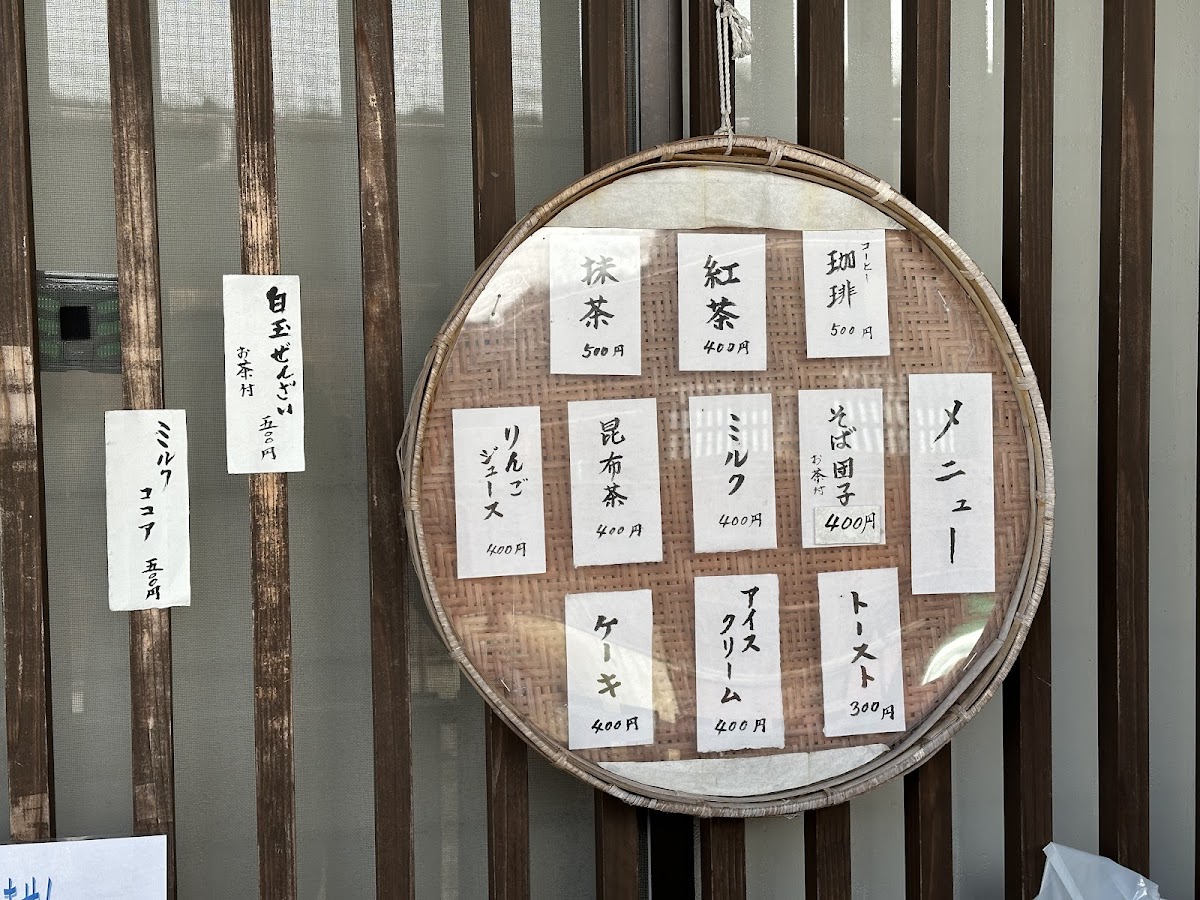 メニュー
コーヒー
珈琲
500円
紅茶
400円
抹茶
500円
そば団子
お茶付
400円
ミルク
400円
昆布茶
400円
りんご
ジュース
400円
トースト
300円
アイス
クリーム
400円
ケーキ
400円
白玉ぜんざい
お茶付
五〇〇円
ミルク
ココア
五〇〇円